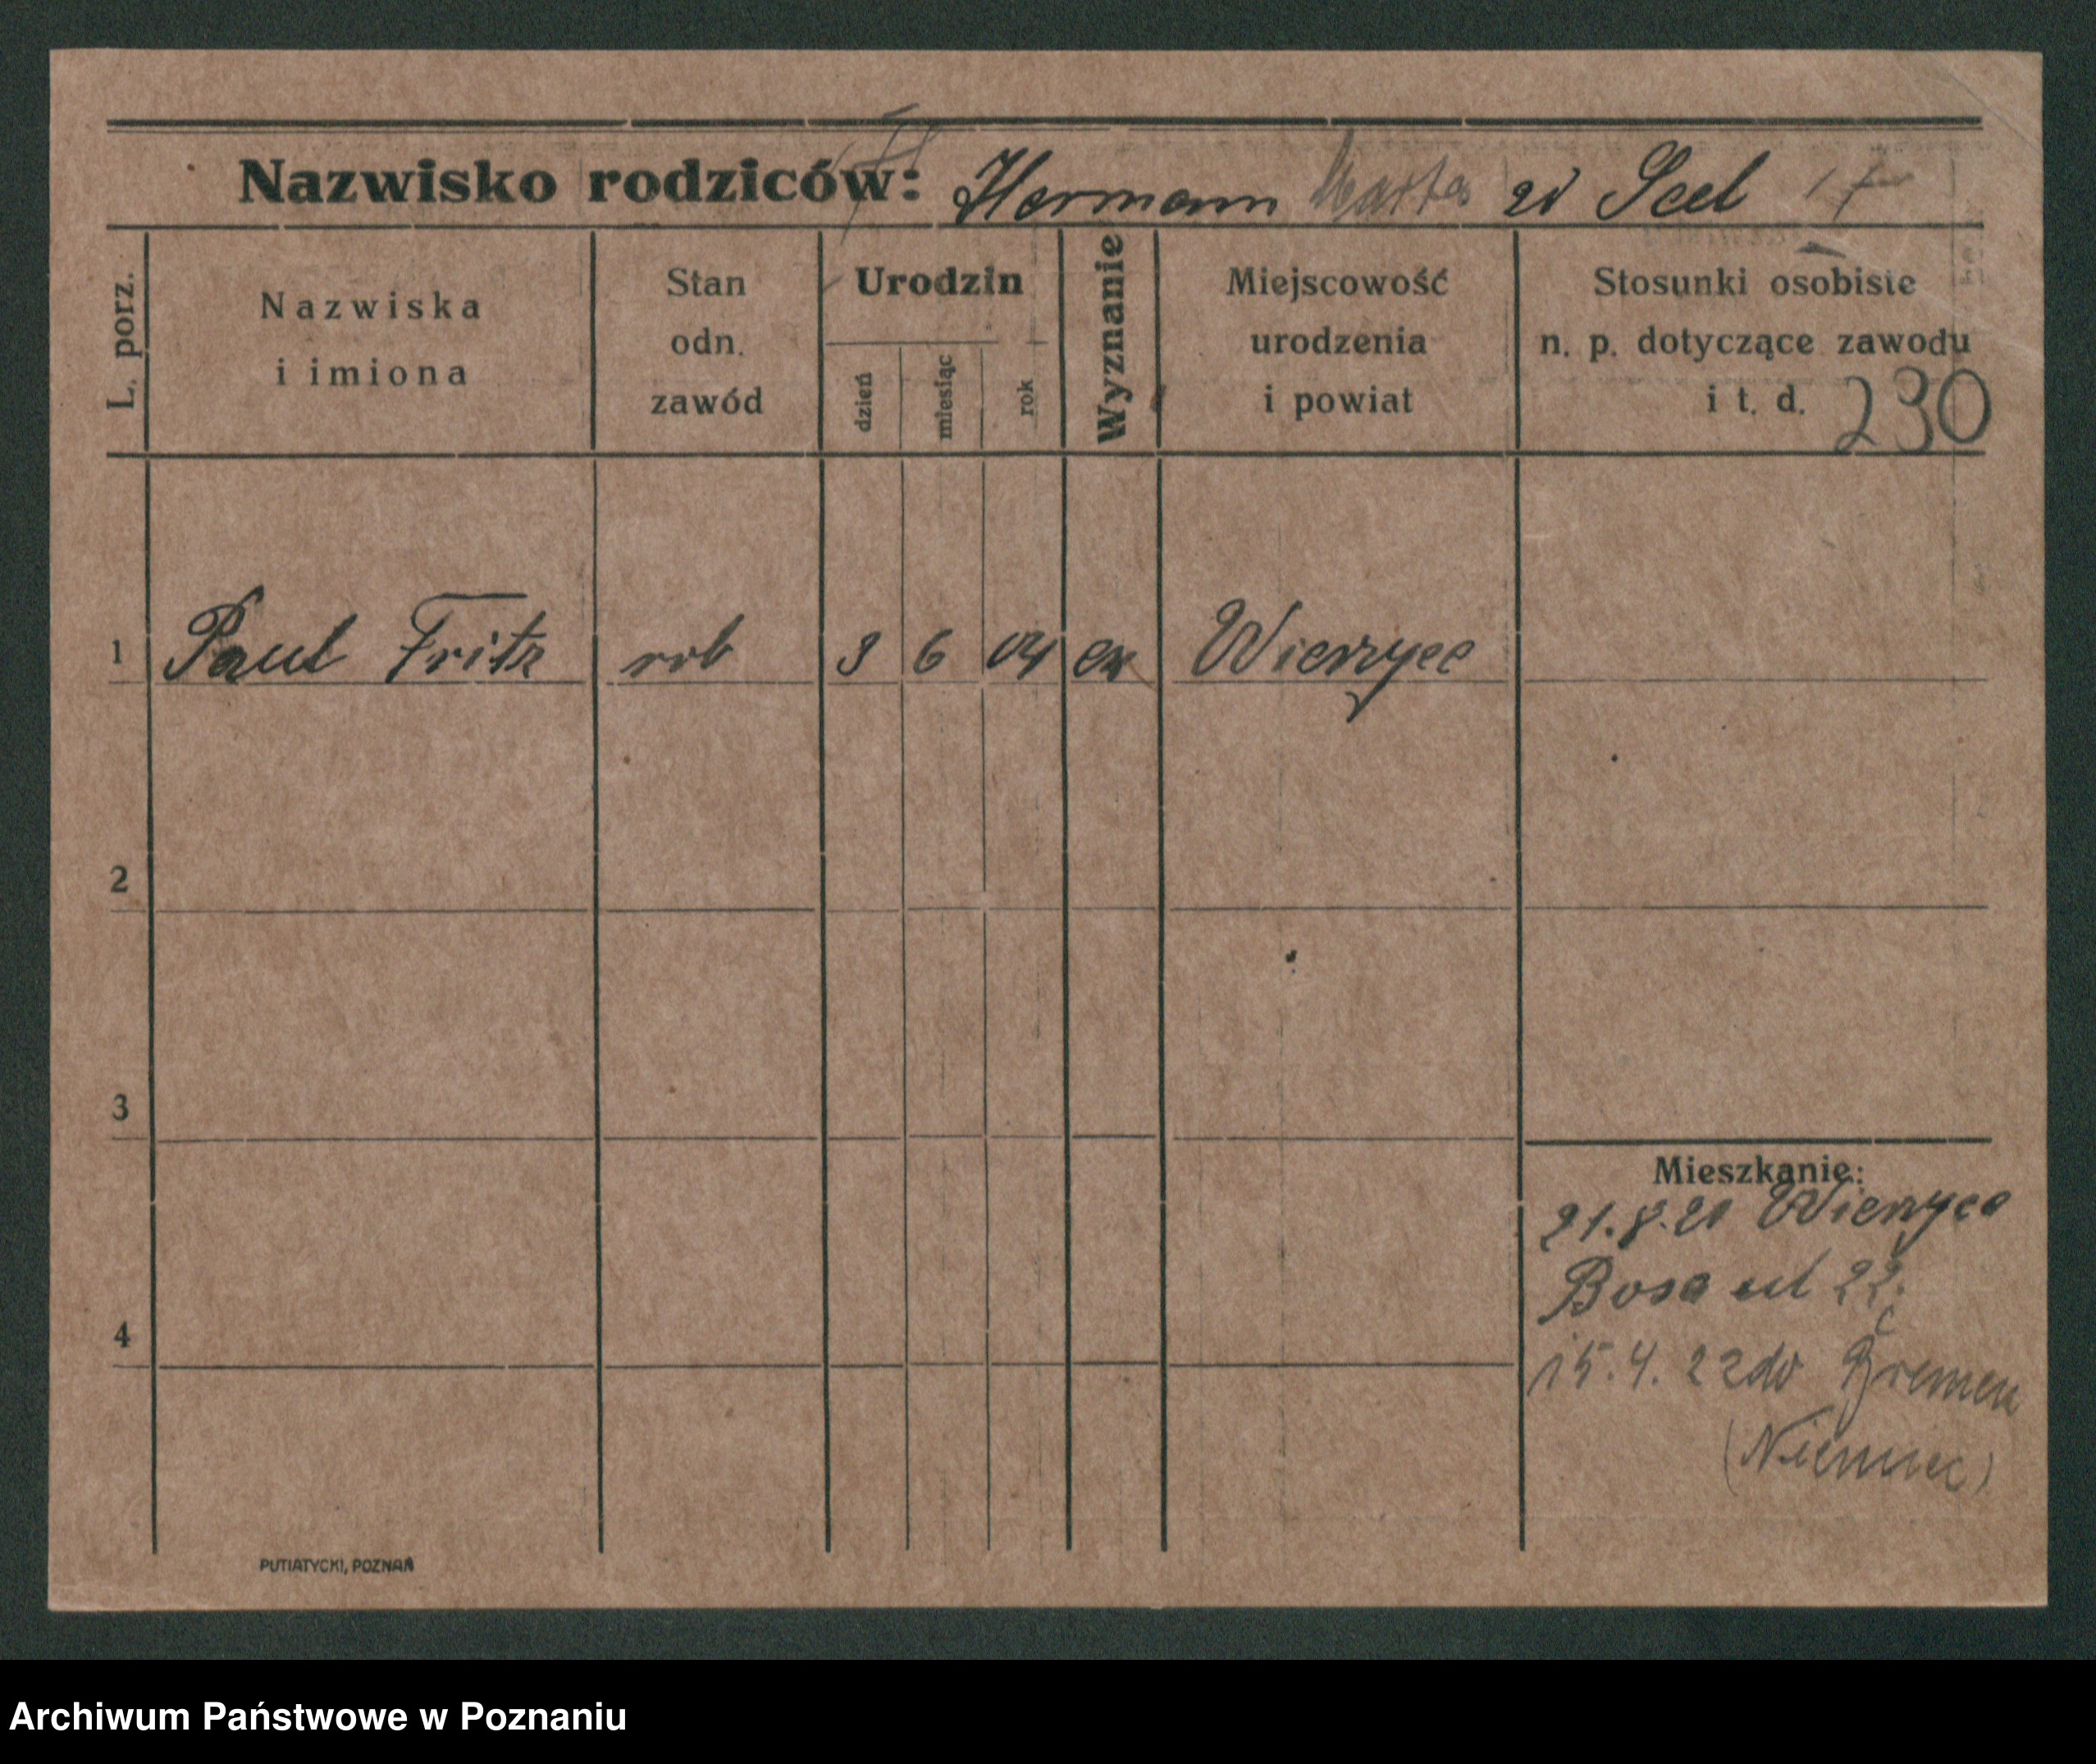 Nazwisko rodziców: Hermann Marta zd Seel
L. porz.
Nazwiska
i imiona
Stan
odn.
zawód
Urodzin
dzień
miesiąc
rok
Wyznanie
Miejscowość
urodzenia
i powiat
Stosunki osobiste
n. p. dotyczące zawodu
i t. d.
230
1 Paul Fritz rob 3 6 04 ew Wierzyce
2
3
4
Mieszkanie:
21.8.21 Wierzyce
22.
15.4.22 do Bremen
(Niemiec)
PUTIATYCKI, POZNAŃ
Archiwum Państwowe w Poznaniu